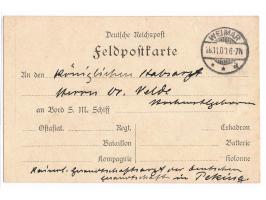 Deutsche Reichspost
Feldpostkarte
WEIMAR
6-7N
An den Königlichen Stabsarzt
Herrn Dr. Velde
Hochwohlgeboren
an Bord S. M. Schiff
Ostasiat. Regt. Eskadron
Bataillon Batterie
Kompagnie Kolonne
Kaiserl. Gesandtschaftsarzt der deutschen
Gesandtschaft in Peking